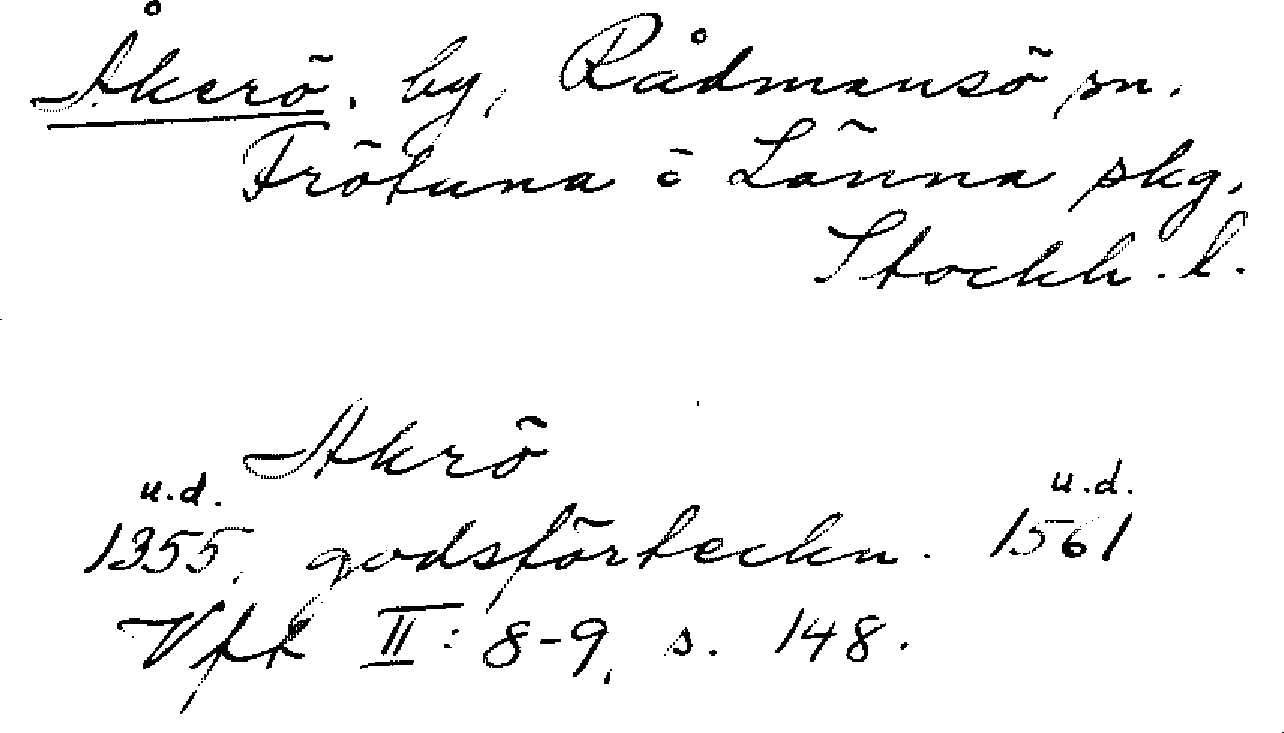 Åkerö. by, Rådmansö sn.
Frötuna o Länna skg.
Stockh. l.
Akrö
u.d. u.d.
1355, godsförteckn. 1561
Vfr II: 8-9, s. 148.